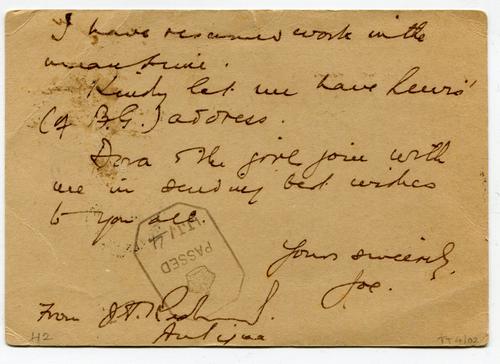 I have resumed work in the
meantime.
Kindly let me have Lewis'
(of B.G.) address.
Dora & the girls join with
me in sending best wishes
to you all.
Yours sincerely,
Joe.
PASSED
From J.
Antigua
42